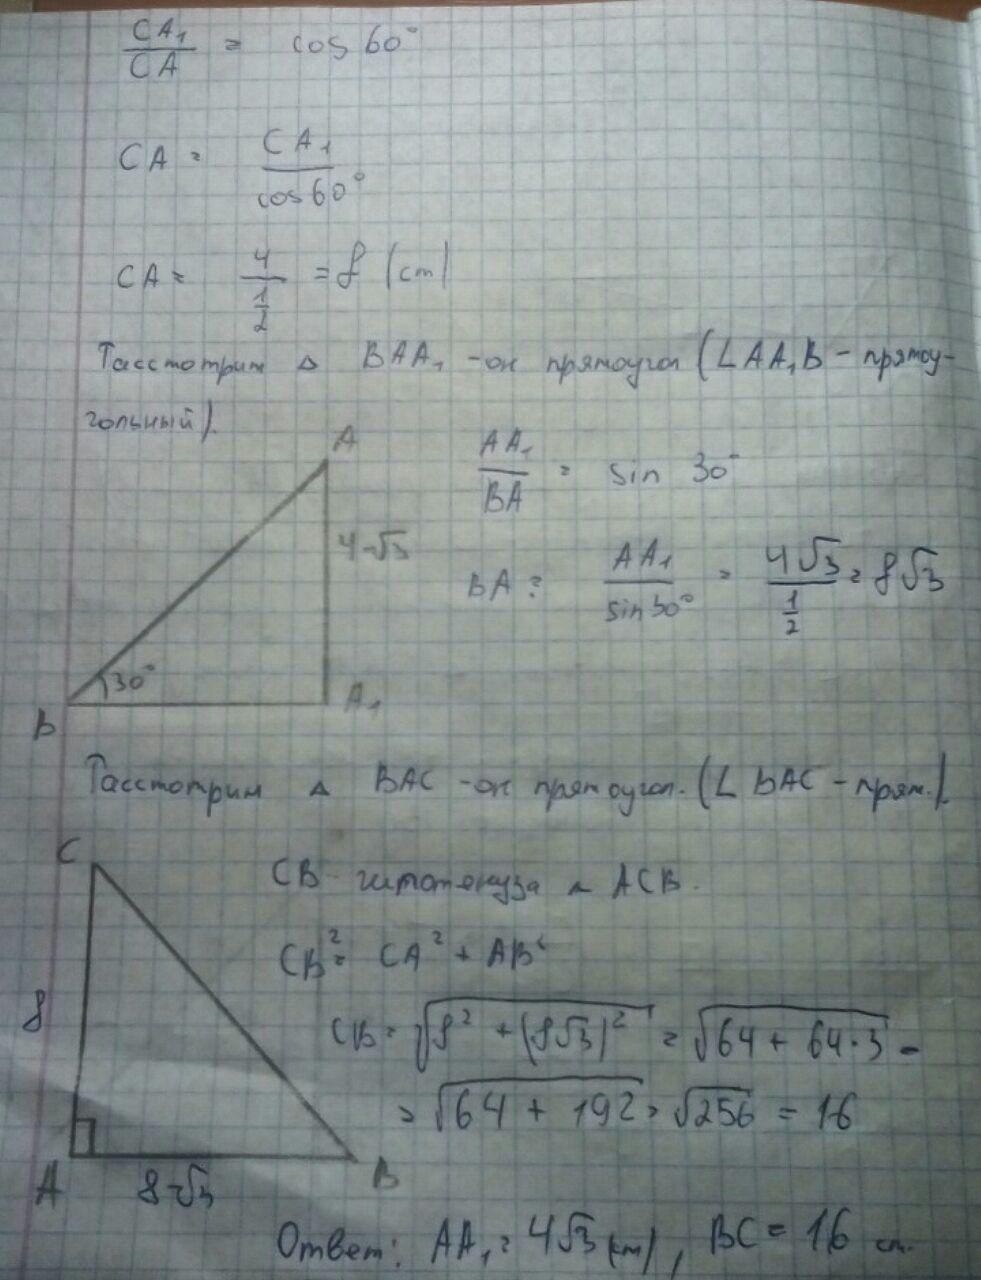 CA₁/CA = cos 60°
CA = CA₁/cos60°
CA = 4/(1/2) = 8 (cm)
Рассмотрим △ BAA₁ - он прямоугол (∠AA₁B - прямоу-
гольный).
A
4√3
30°
B
A₁
AA₁/BA = sin 30°
BA = AA₁/sin30° = 4√3/(1/2) = 8√3
Рассмотрим △ BAC - он прямоугол. (∠BAC - прям.)
C
8
A
8√3
B
CB - гипотенуза △ ACB.
CB² = CA² + AB²
CB = √(8² + (8√3)²) = √(64 + 64·3) =
= √(64 + 192) = √256 = 16
Ответ: AA₁ = 4√3 (cm), BC = 16 cm.